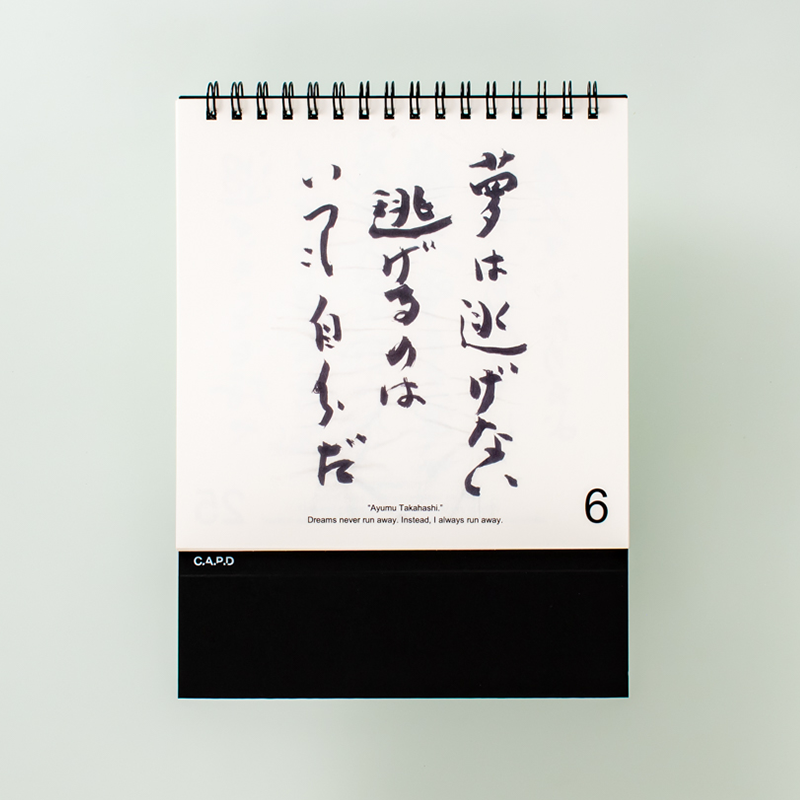 夢は逃げない
逃げるのは
いつも自分だ
"Ayumu Takahashi."
Dreams never run away. Instead, I always run away.
6
C.A.P.D